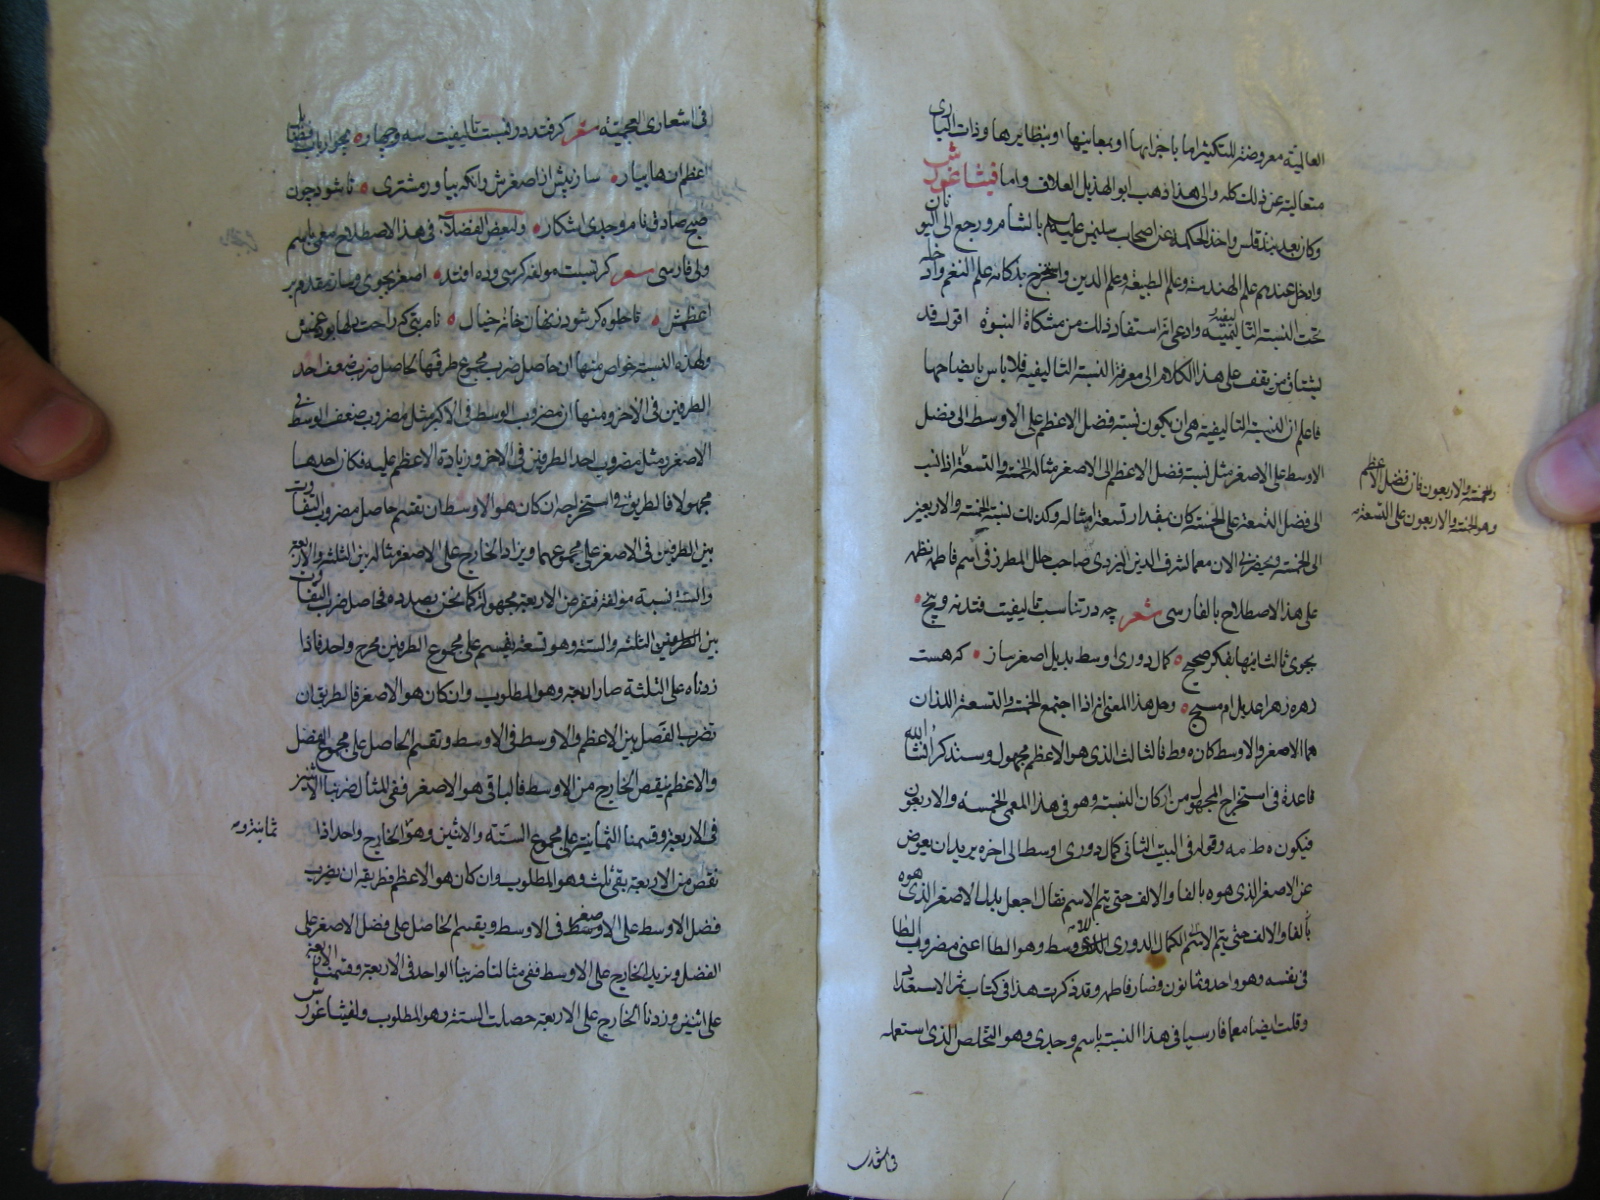 العالية معروضة للمتكثر اما باجزائها او بمعاينها او بنظايرها وذات الباري
متعالية عن ذلك كله والى هذا ذهب ابو الهذيل العلاف واما فيثاغورش
وكان بعد بندقلس واخذ الحكمة عن اصحاب سليمن عليه بالشام ورجع الى اليونان
وادخل عندهم علم الهندسة وعلم الطبيعة وعلم الدين واستخرج بذكائه علم النغم وادخله
تحت النسبة التاليفية وادعى انه استفاد ذلك من مشكاة النبوة اقول قد
يشتاق من يقف على هذا الكلام الى معرفة النسبة التاليفية فلا باس بايضاحها
فاعلم ان النسبة التاليفية هى ان يكون نسبة فضل الاعظم على الاوسط الى فضل
الاوسط على الاصغر مثل نسبة فضل الاعظم الى الاصغر مثاله الخمسة والتسعة اذا نسب
الى فضل التسعة على الخمسة كان بمقدار تسعة امثاله وكذلك نسبة الخمسة والاربعين
الى الخمسة ويحضرنى الان معما لشرف الدين اليزدى صاحب حلل المطرز فى اسم فاطمه نظمه
على هذا الاصطلاح بالفارسى شعر چه در تناسب تاليفيت فتد نه و پنج
بجوى ثالث اينها بفكر صحيح كمال دورى اوسط بديل اصغر ساز كه هست
زهره زهرا عديل ام مسيح وحل هذا المعنى انه اذا اجتمع الخمسة والتسعة اللذان
هما الاصغر والاوسط كان ه وط فالثالث الذى هو الاعظم مجهول وسنذكر ان شا الله
قاعدة فى استخراج المجهول من اركان النسبة وهو فى هذا المعمى الخمسة والاربعون
فيكون ه ط مه وقوله فى البيت الثانى كمال دورى اوسط الى اخره يريد ان يعوض
عن الاصغر الذى هو ه بالفا والالف حتى يتم الاسم فقال اجعل بدل الاصغر الذى هو ه
بالفا والالف حتى يتم الاسم الكمال الدورى للاوسط وهو الطا اعنى مضروب الطا
فى نفسه وهو واحد وثمانون فصار فاطمه وقد ذكرت هذا فى كتاب
وقلت ايضا معما فارسيا فى هذا النسبة باسم وحدى وهو التخلص الذى استعمله
والخمسة والاربعون فان فضل الاعظم
وهو الخمسة والاربعون على التسعة
فى اشعارى العجمية شعر كر فتد در نسبت تاليفيت سه و چهار
اعظم ان ها بيار ساز پيش از اصغرش وانكه بيا ور مشترى تا شود چون
صبح صادق نام وحدى اشكار ولبعض الفضلا فى هذا الاصطلاح معمى باسم
ولى فارسى شعر كر نسبت مولفه كرسى وده اوفتد اصغر بجوى وساز مقدم بر
اعظمش
ولهذه النسبة خواص منها ان حاصل ضرب مجموع طرفيها كحاصل ضرب ضعف احد
الطرفين فى الاخر ومنها ان مضروب الوسط فى الاكبر مثل مضروب ضعف الوسط فى
الاصغر ومثل مضروب احد الطرفين فى الاخر وزيادة الاعظم عليه فكان احدها
مجهولا فالطريق فى استخراجه ان كان هو الاوسط ان تقسم حاصل مضروب التفاوت
بين الطرفين فى الاصغر على مجموعهما ويزاد الخارج على الاصغر مثاله بين الثلثة والاربعة
والستة نسبة مولفة فنفرض الاربعة مجهولة كما نحن بصدده فحاصل ضرب التفاوت
بين الطرفين الثلثة والستة وهو تسعة يقسم على مجموع الطرفين مخرج واحد فاذا
زدناه على الثلثة صار اربعة وهو المطلوب وان كان هو الاصغر فالطريق ان
تضرب الفضل بين الاعظم والاوسط فى الاوسط وتقسم الحاصل على مجموع الفضل
والاعظم فينقص الخارج من الاوسط فالباقى هو الاصغر ففى المثال ضربنا الاثنين
فى الاربعة وقسمنا الثمانية على مجموع الستة والاثنين وهو الخارج واحد اذا
نقص من الاربعة بقى ثلث وهو المطلوب وان كان هو الاعظم فطريقه ان يضرب
فضل الاوسط على الاصغر فى الاوسط ويقسم الحاصل على فضل الاصغر على
الفضل ونزيد الخارج على الاوسط ففى مثالنا ضربنا الواحد فى الاربعة وقسمنا الاربعة
على اثنين وزدنا الخارج على الاربعة حصلت الستة وهو المطلوب ولفيثاغورش
ثمانية